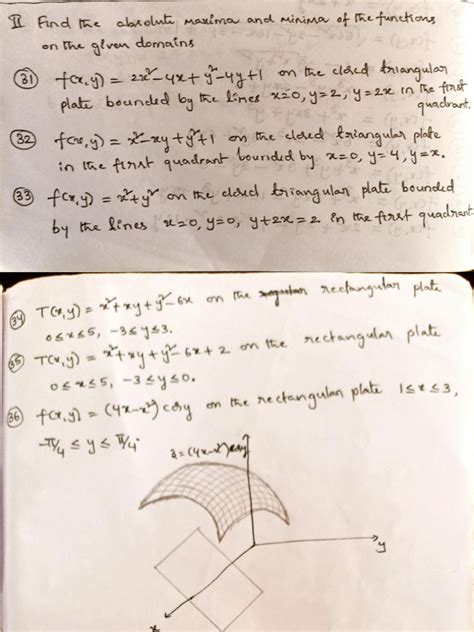 II Find the absolute maxima and minima of the functions
on the given domains
(31) f(x,y) = 2x²-4x+y²-4y+1 on the closed triangular
plate bounded by the lines x=0, y=2, y=2x in the first
quadrant.
(32) f(x,y) = x²-xy+y²+1 on the closed triangular plate
in the first quadrant bounded by x=0, y=4, y=x.
(33) f(x,y) = x²+y² on the closed triangular plate bounded
by the lines x=0, y=0, y+2x=2 in the first quadrant
(34) T(x,y) = x²+xy+y²-6x on the rectangular plate
0≤x≤5, -3≤y≤3.
(35) T(x,y) = x²+xy+y²-6x+2 on the rectangular plate
0≤x≤5, -3≤y≤0.
(36) f(x,y) = (4x-x²) cosy on the rectangular plate 1≤x≤3,
-π/4 ≤ y ≤ π/4.
z=(4x-x²)cosy
y
x